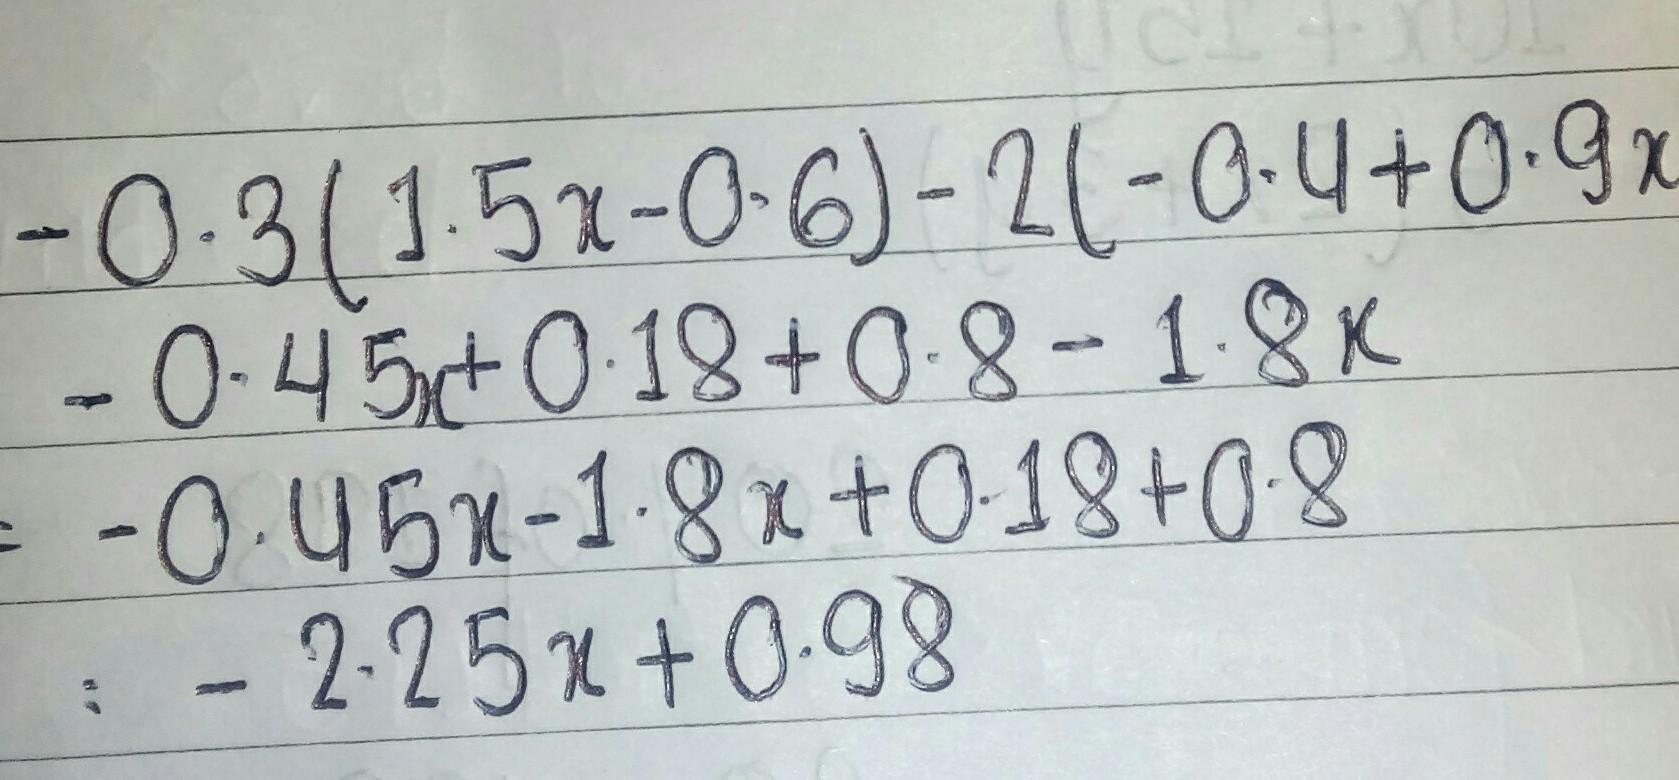 -0.3(1.5x-0.6)-2(-0.4+0.9x
-0.45x+0.18+0.8-1.8x
= -0.45x-1.8x+0.18+0.8
: -2.25x+0.98